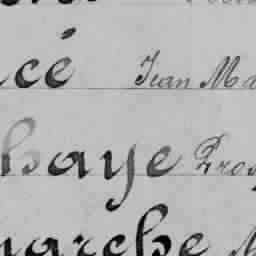 cé Jean Ma
haye Pros
marche